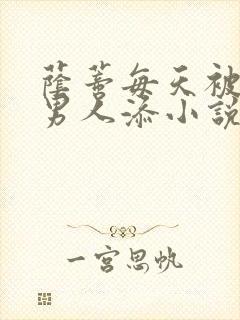 蔭蒂每天被
男人添小說
一宮思帆